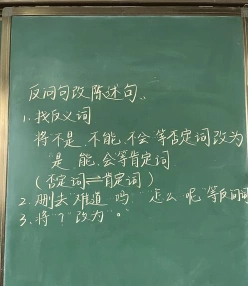 反问句改陈述句。
1.找反义词
将不是、不能、不会等否定词改为
"是、能、会等肯定词
(否定词⇌肯定词)
2.删去"难道 吗""怎么 呢"等反问词
3.将"?"改为"。"